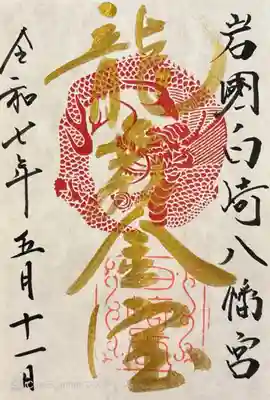 岩國白崎八幡宮
龍 金
令和七年五月十一日